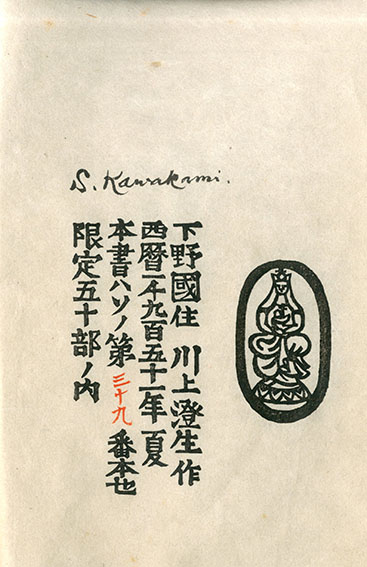 S. Kawakami.
下野國住 川上澄生作
西暦一千九百五十一年夏
本書ハソノ第三十九番本也
限定五十部ノ内